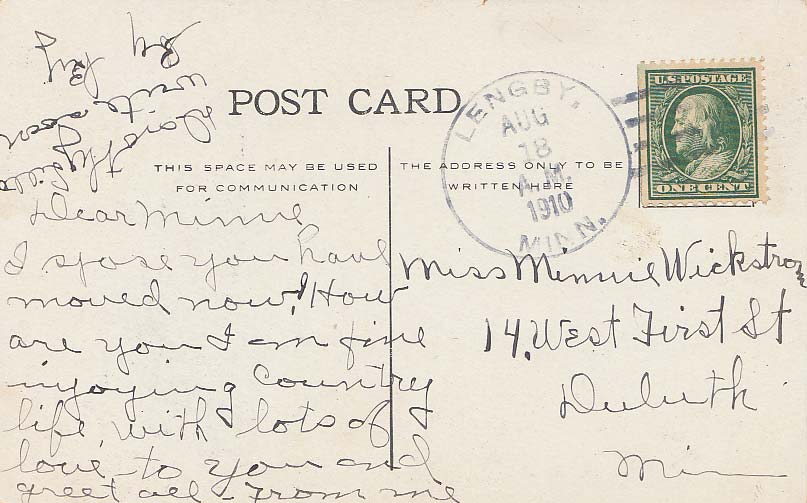 POST CARD
THIS SPACE MAY BE USED
FOR COMMUNICATION
THE ADDRESS ONLY TO BE
WRITTEN HERE
LENGBY,
AUG
18
A.M.
1910
MINN.
U.S. POSTAGE
ONE CENT
Dear Minnie
I spose you have
moved now! How
are you I am fine
injoying Country
life, with lots of
love to you and
greet all - From me
write soon
Miss Minnie Wickstrom
14. West First St
Duluth
Minn